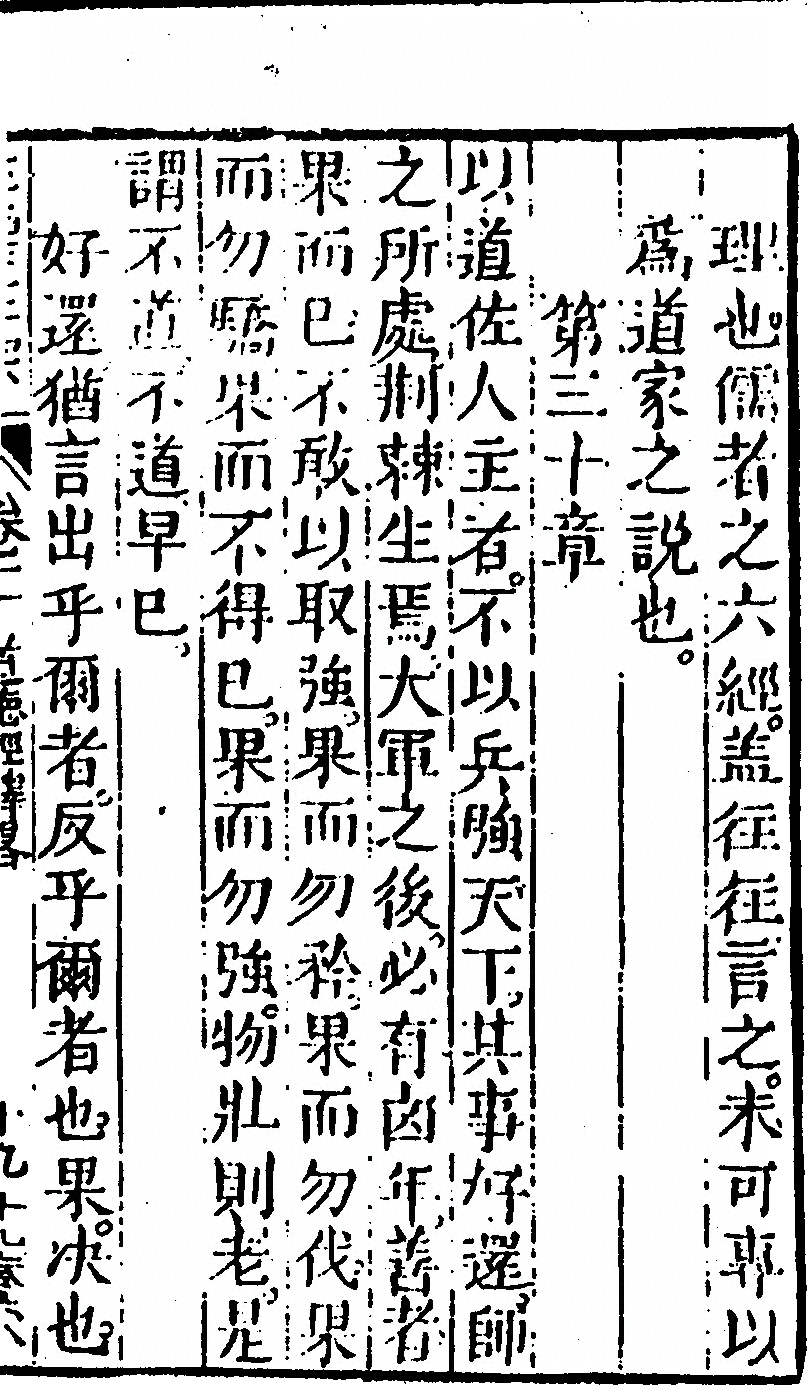 理也。儒者之六經。盖徃徃言之。未可專以
爲道家之說也。
第三十章
以道佐人主者。不以兵強天下、其事好還、師
之所處荆棘生焉、大軍之後、必有凶年、善者
果而已不敢以取強、果而勿矜、果而勿伐果
而勿驕果而不得已、果而勿強。物壯則老、是
謂不道不道早已、
好還猶言出乎爾者、反乎爾者也、果。决也、